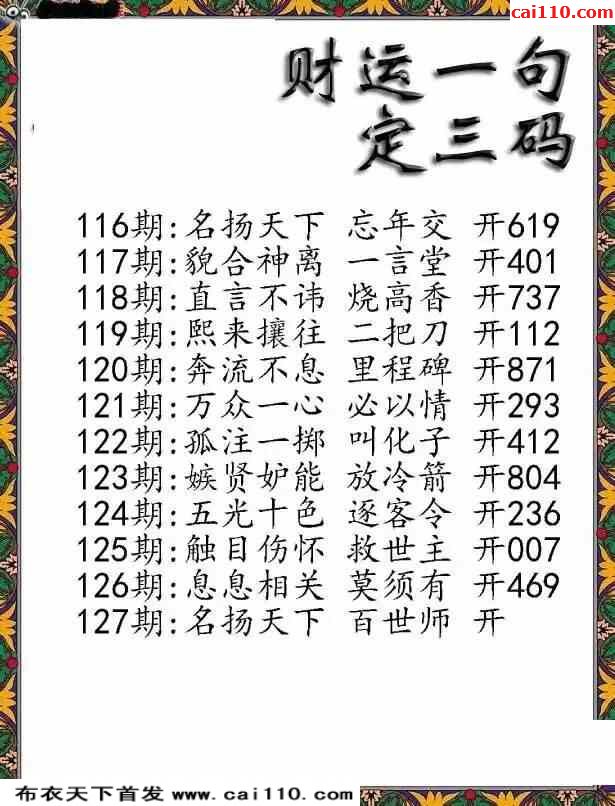 cai110.com
财运一句
定三码
116期:名扬天下 忘年交 开619
117期:貌合神离 一言堂 开401
118期:直言不讳 烧高香 开737
119期:熙来攘往 二把刀 开112
120期:奔流不息 里程碑 开871
121期:万众一心 必以情 开293
122期:孤注一掷 叫化子 开412
123期:嫉贤妒能 放冷箭 开804
124期:五光十色 逐客令 开236
125期:触目伤怀 救世主 开007
126期:息息相关 莫须有 开469
127期:名扬天下 百世师 开
布衣天下首发 www.cai110.com